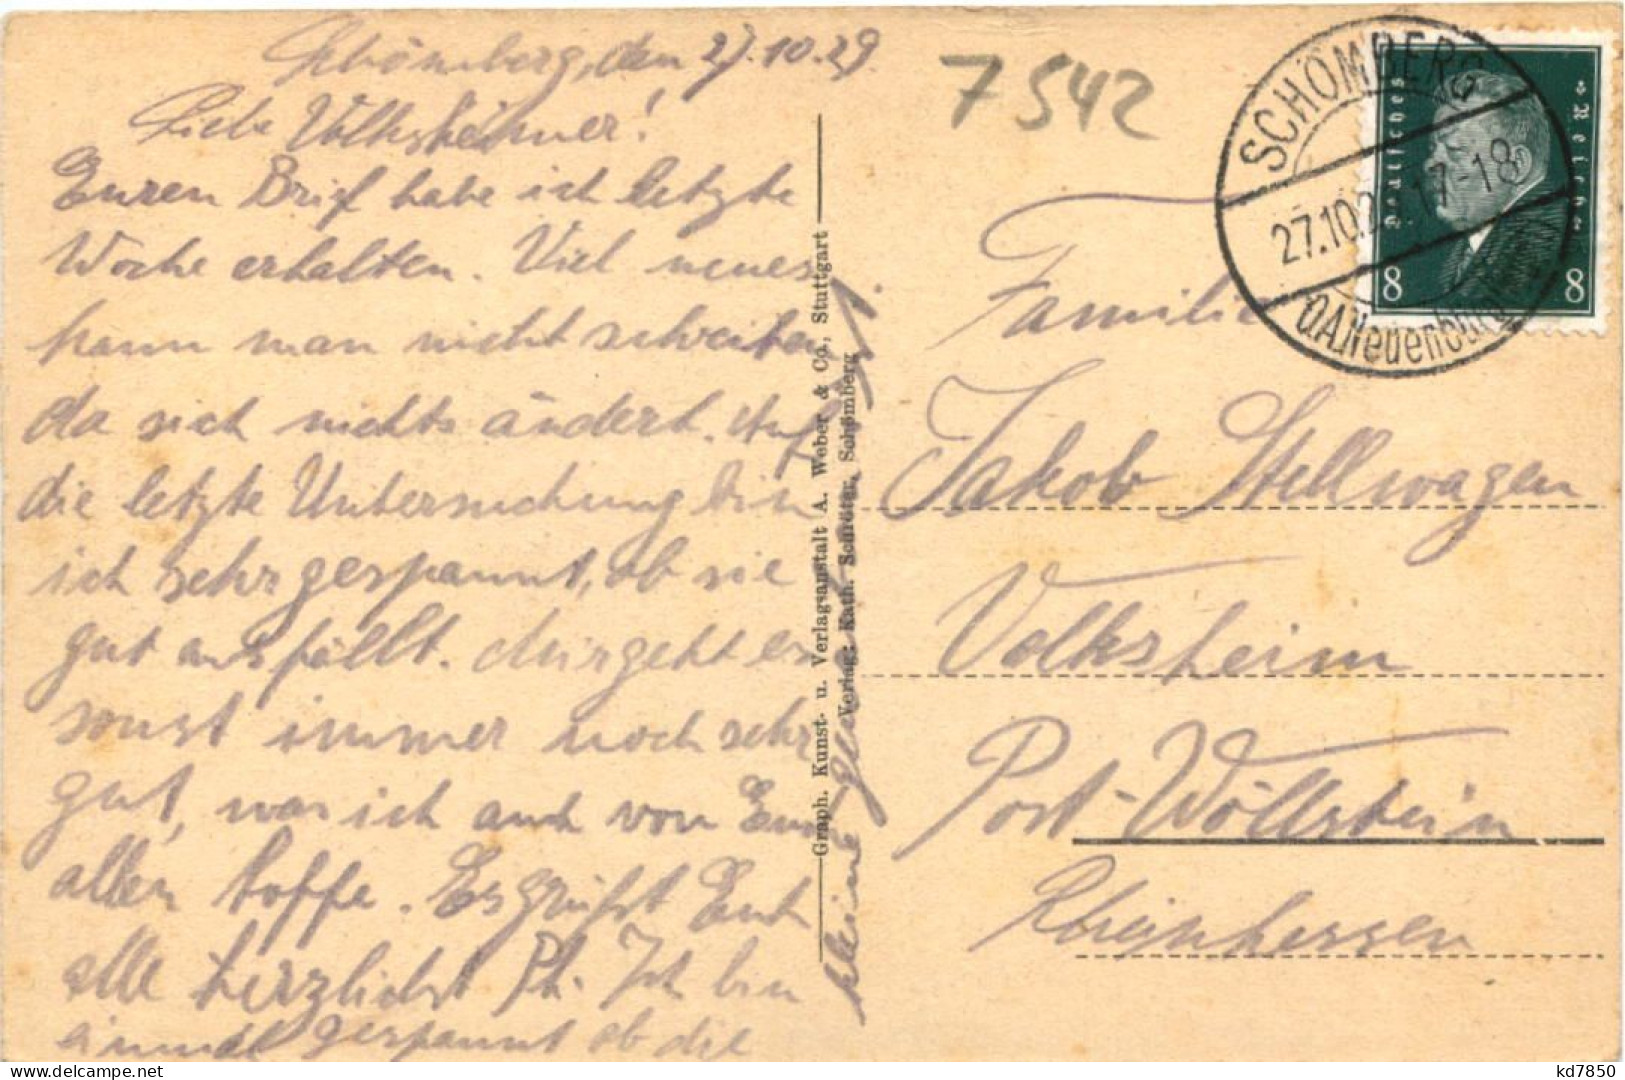 Schömberg, den 27.10.29.
Liebe Volksheimer!
Euren Brief habe ich letzte
Woche erhalten. Viel neues
kann man nicht schreiben
da sich nichts ändert. Auf
die letzte Untersuchung bin
ich sehr gespannt, ob sie
gut ausfällt. Mir geht es
sonst immer noch sehr
gut, was ich auch von Euch
allen hoffe. Es grüßt Euch
alle herzlichst Ph. Ich bin
einmal gespannt ob die
kleine
Graph. Kunst- u. Verlagsanstalt A. Weber & Co., Stuttgart
Verlag: Kath. Schröter, Schömberg
7542
SCHÖMBERG
27.10.2 17-18
O.A. Neuenbürg
Deutsches Reich
8 8
Familie
Jakob Stellwagen
Volksheim
Post-Wöllstein
Rheinhessen
delcampe.net
kd7850